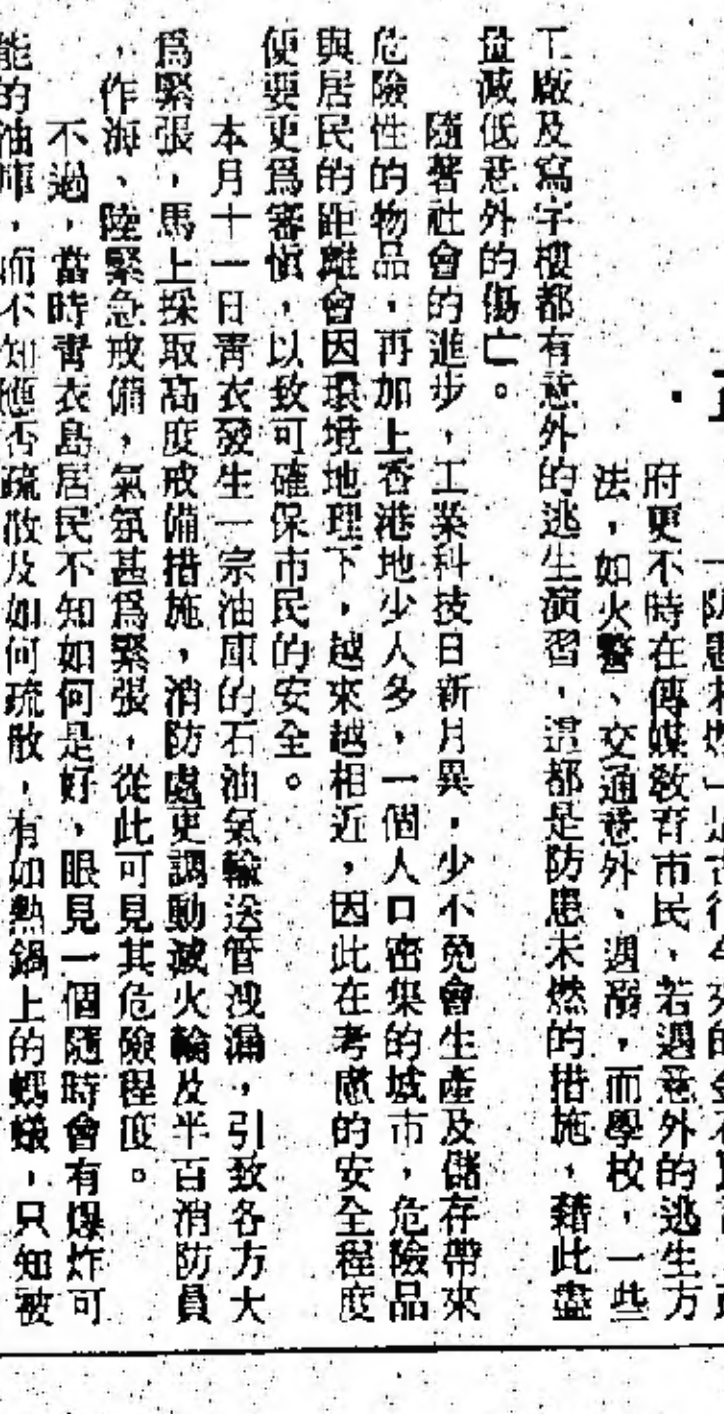 防患未然
府更不時在傳媒敎育市民、若遇意外的逃生方
法，如火警、交通意外、遇溺，而學校，一些
工廠及寫字樓都有意外的逃生演習，這都是防患未然的措施，藉此盡
量減低意外的傷亡。
隨著社會的進步，工業科技日新月異，少不免會生產及儲存帶來
危險性的物品，再加上香港地少人多，一個人口密集的城市，危險品
與居民的距離會因環境地理下，越來越相近，因此在考慮的安全程度
便要更爲審愼，以致可確保市民的安全。
本月十一日靑衣發生一宗油庫的石油氣輸送管洩漏，引致各方大
爲緊張，馬上採取高度戒備措施，消防處更調動滅火輪及半百消防員
，作海、陸緊急戒備，氣氛甚爲緊張，從此可見其危險程度。
不過，當時靑衣島居民不知如何是好，眼見一個隨時會有爆炸可
能的油庫，而不知應否疏散及如何疏散，有如熱鍋上的螞蟻，只知被